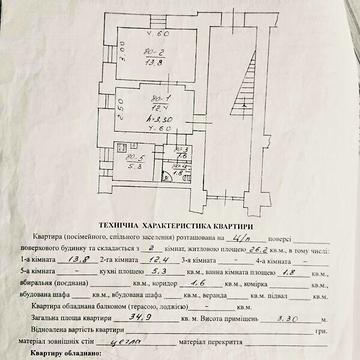 4.60
3.00
20-2
13.8
2.50
20-1
12.4
h=3.30
4.60
20-5
5.3
20-3
1.6
1.8
ТЕХНІЧНА ХАРАКТЕРИСТИКА КВАРТИРИ
Квартира (посімейного, спільного заселення) розташована на ц/п поверсі
поверхового будинку та складається з 2 кімнат, житловою площею 26.2 кв.м., в тому числі:
1-а кімната 13,8 2-га кімната 12.4 3-я кімната - 4-а кімната -
5-а кімната - кухні площею 5.3 кв.м., ванна кімната площею 1.8 кв.м.,
вбиральня (поєднана) кв.м., коридор 1.6 кв.м., комірка кв.м.,
вбудована шафа кв.м., вбудована шафа кв.м., веранда кв.м. підвал кв.м.
Квартира обладнана балконом (терасою, лоджією) кв.м.
Загальна площа квартири 34,9 кв. м. Висота приміщень 3.30 м.
Відновлена вартість квартири грн.
матеріал зовнішніх стін цегла матеріал перекриття
Квартиру обладнано: